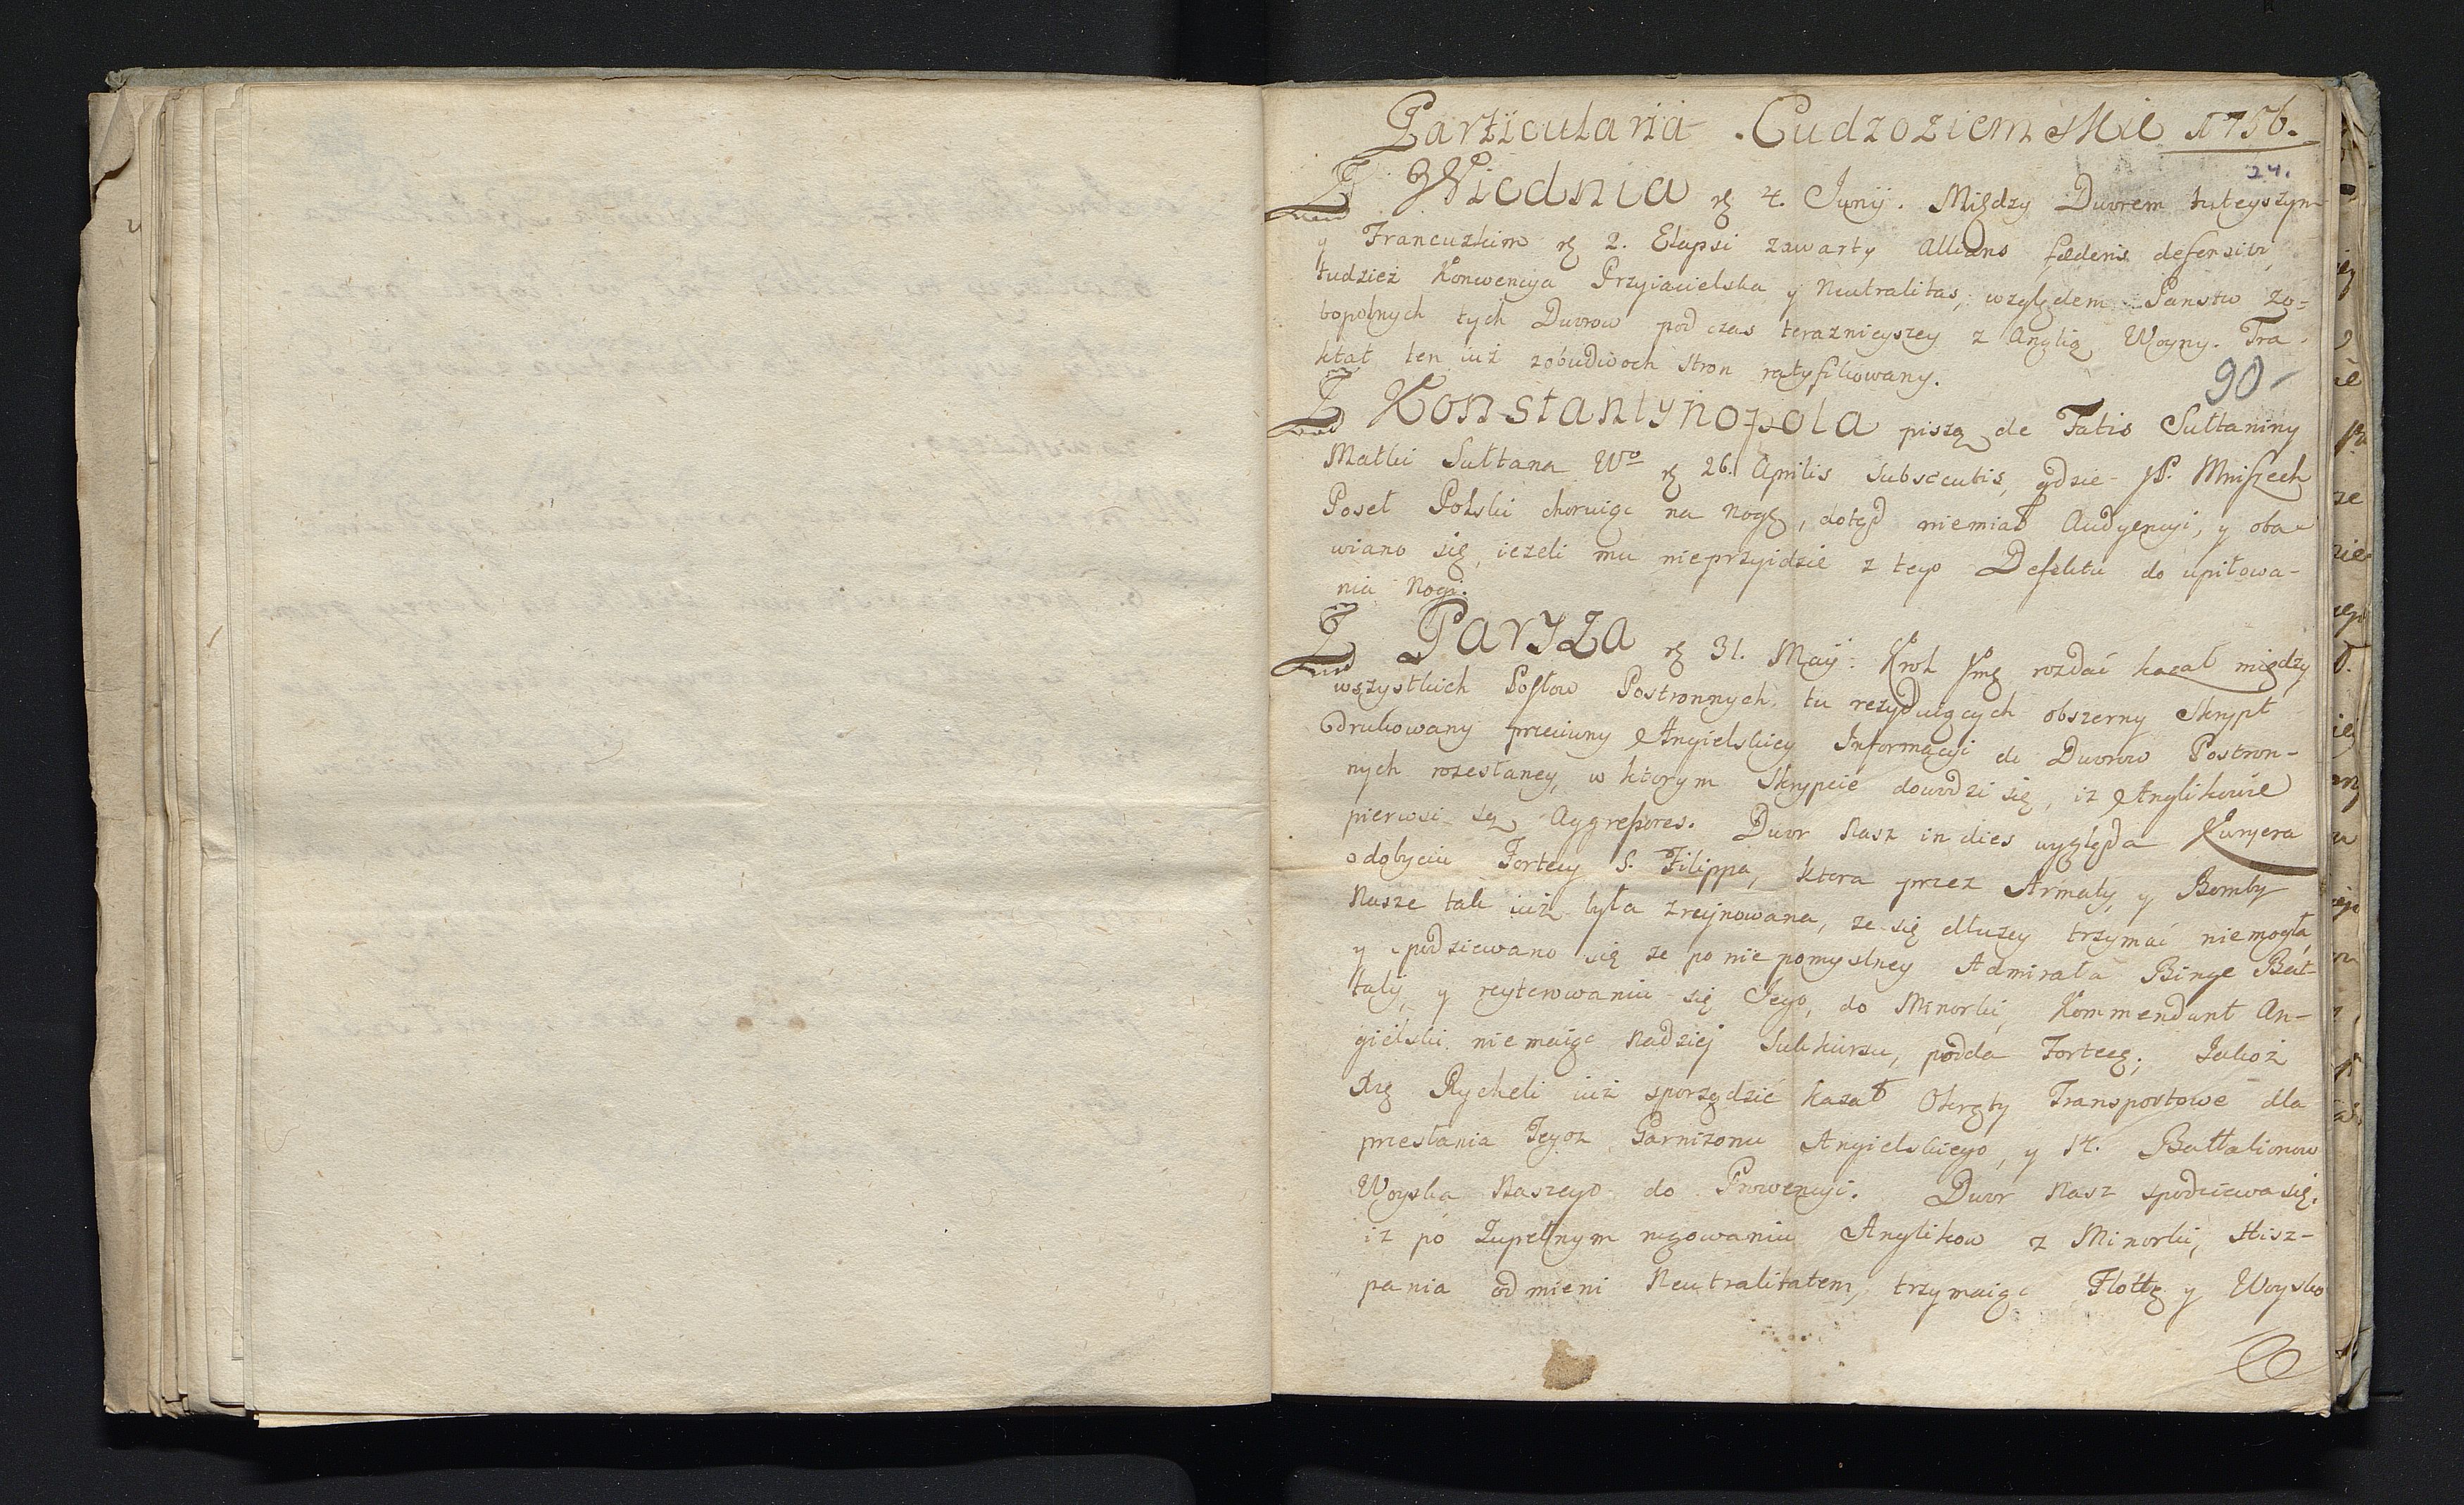 Particularia Cudzoziemskie 1756.
24.
Z Wiednia 4. Junij. Między Dworem tuteyszym
y Francuzkim 2. Elapsi zawarty Allians faederis defensivi,
tudzież Konwencya Przyiacielska y Neutralitas, względem Panstw zo-
bopolnych tych Dworow pod czas teraznieyszey z Anglią Woyny. Tra-
ktat ten iuż zobudwoch Stron ratyfikowany.
90
Z Konstantynopola piszą de Fatis Sułtaniny
Matki Sułtana Wo 26. Aprilis Subsecutis, gdzie JP. Mniszech
Poseł Polski choruiąc na Nogę, dotąd niemiał Audyencyi, y oba-
wiano się, ieżeli mu nieprzyidzie z tego Defektu do upiłowa-
nia Nogi.
Z Paryża 31. Maij. Krol Jmę rozdać kazał między
wszystkich Posłow Postronnych tu rezyduiących obszerny Skrypt
drukowany przeciwny Angielskiey Informacyi do Dworow Postron-
nych rozesłaney, w ktorym Skrypcie dowodzi się, iz Anglikowie
pierwsi są Aggressores. Dwor Nasz in dies wygląda Kuryera
o dobyciu Fortecy S. Filippa, ktora przez Armaty y Bomby
Nasze tak iuż była zruynowana, ze się dłużey trzymać niemogła,
y spodziewano się ze po nie pomyslney Admirała Binge Bat-
talij, y reyterowaniu się Jego, do Minorki, Kommendant An-
gielski niemaiąc Nadziej Sukkursu, podda Fortecę; Jakoż
Xżę Rycheli iuż sporządzić kazał Okręty Transportowe dla
przesłania Tegoz Garnizonu Angielskiego, y 14. Battalionow
Woyska Naszego do Prowencyi. Dwor Nasz spodziewa się,
iz po zupełnym rugowaniu Anglikow z Minorki, Hisz-
pania odmieni Neutralitatem, trzymaiąc Flottę y Woysko